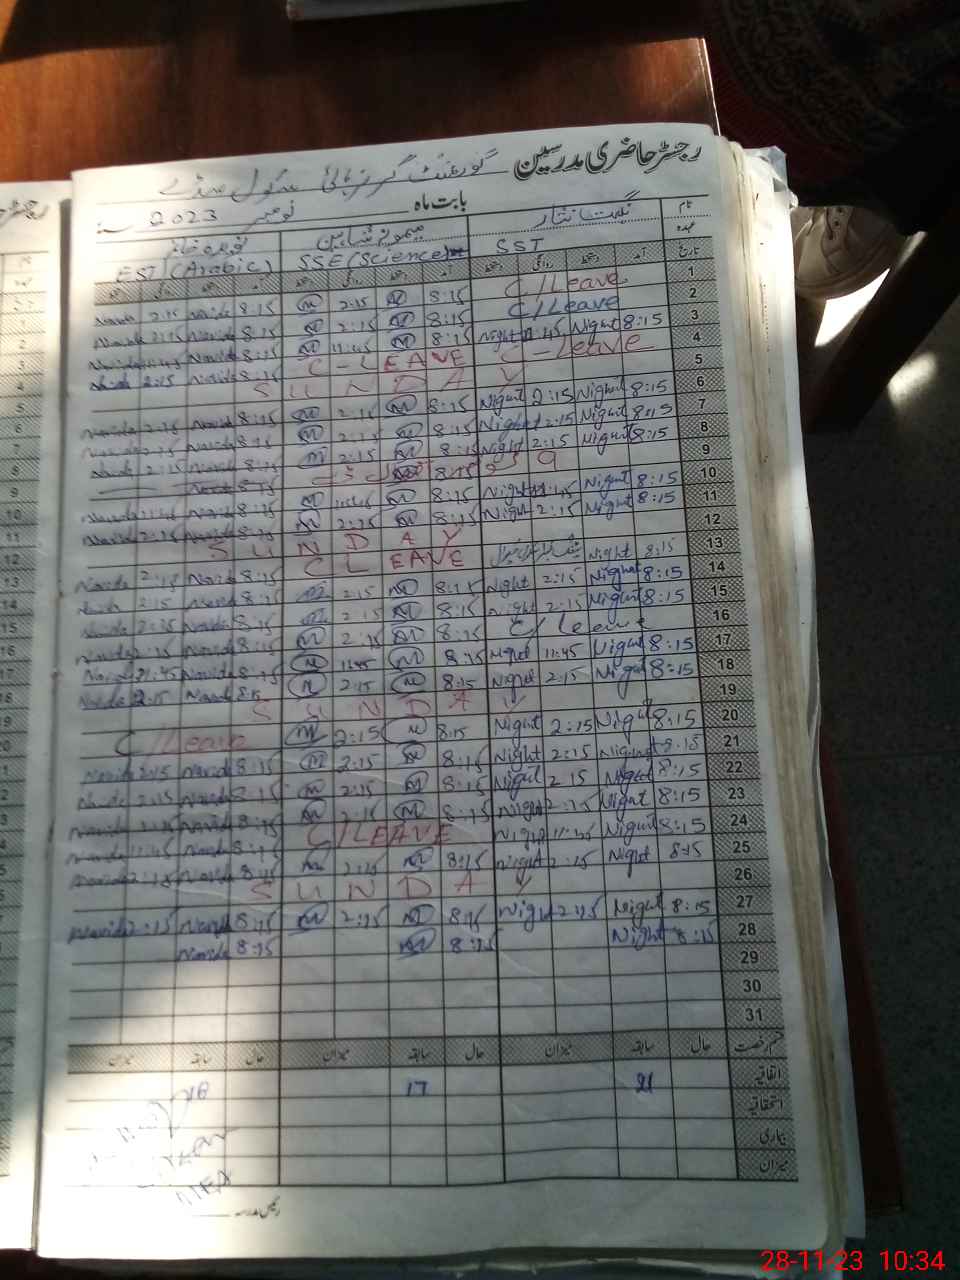 رجسٹر حاضری مدرسین
گورنمنٹ گرلز ہائی سکول
بابت ماہ نومبر 2023
نام نگہت نثار میمونہ شاہین نویدہ خانم
عہدہ SST SSE (Science) EST (Arabic)
تاریخ آمد دستخط روانگی دستخط آمد دستخط روانگی دستخط آمد دستخط روانگی دستخط
Navida 2:15 Navida 8:15 M 2:15 M 8:15 C/Leave 1
Navida 2:15 Navida 8:15 M 2:15 M 8:15 C/Leave 2
Navida 11:45 Navida 8:15 M 11:45 M 8:15 Night 11:45 Night 8:15 3
Navida 2:15 Navida 8:15 C-LEAVE C-Leave 4
SUNDAY 5
Navida 2:15 Navida 8:15 M 2:15 M 8:15 Night 2:15 Night 8:15 6
Navida 2:15 Navida 8:15 M 2:15 M 8:15 Night 2:15 Night 8:15 7
Navida 2:15 Navida 8:15 M 2:15 M 8:15 Night 2:15 Night 8:15 8
Navida 8:15 M 8:15 9 9
Navida 11:45 Navida 8:15 M 11:45 M 8:15 Night 11:45 Night 8:15 10
Navida 2:15 Navida 8:15 M 2:15 M 8:15 Night 2:15 Night 8:15 11
SUNDAY 12
Navida 2:15 Navida 8:15 C LEAVE Night 8:15 13
Navida 2:15 Navida 8:15 M 2:15 M 8:15 Night 2:15 Night 8:15 14
Navida 2:15 Navida 8:15 M 2:15 M 8:15 Night 2:15 Night 8:15 15
Navida 2:15 Navida 8:15 M 2:15 M 8:15 C/leave 16
Navida 11:45 Navida 8:15 M 11:45 M 8:15 Night 11:45 Night 8:15 17
Navida 2:15 Navida 8:15 M 2:15 M 8:15 Night 2:15 Night 8:15 18
SUNDAY 19
C/Leave M 2:15 M 8:15 Night 2:15 Night 8:15 20
Navida 2:15 Navida 8:15 M 2:15 M 8:15 Night 2:15 Night 8:15 21
Navida 2:15 Navida 8:15 M 2:15 M 8:15 Night 2:15 Night 8:15 22
Navida 2:15 Navida 8:15 M 2:15 M 8:15 Night 2:15 Night 8:15 23
Navida 11:45 Navida 8:15 C/LEAVE Night 11:45 Night 8:15 24
Navida 2:15 Navida 8:15 M 2:15 M 8:15 Night 2:15 Night 8:15 25
SUNDAY 26
Navida 2:15 Navida 8:15 M 2:15 M 8:15 Night 2:15 Night 8:15 27
Navida 8:15 M 8:15 Night 8:15 28
29
30
31
قسم رخصت حال سابقہ میزان حال سابقہ میزان حال سابقہ میزان
اتفاقیہ 21 17 18
استحقاقیہ
بیماری
میزان
رئیس مدرسہ
28-11-23 10:34